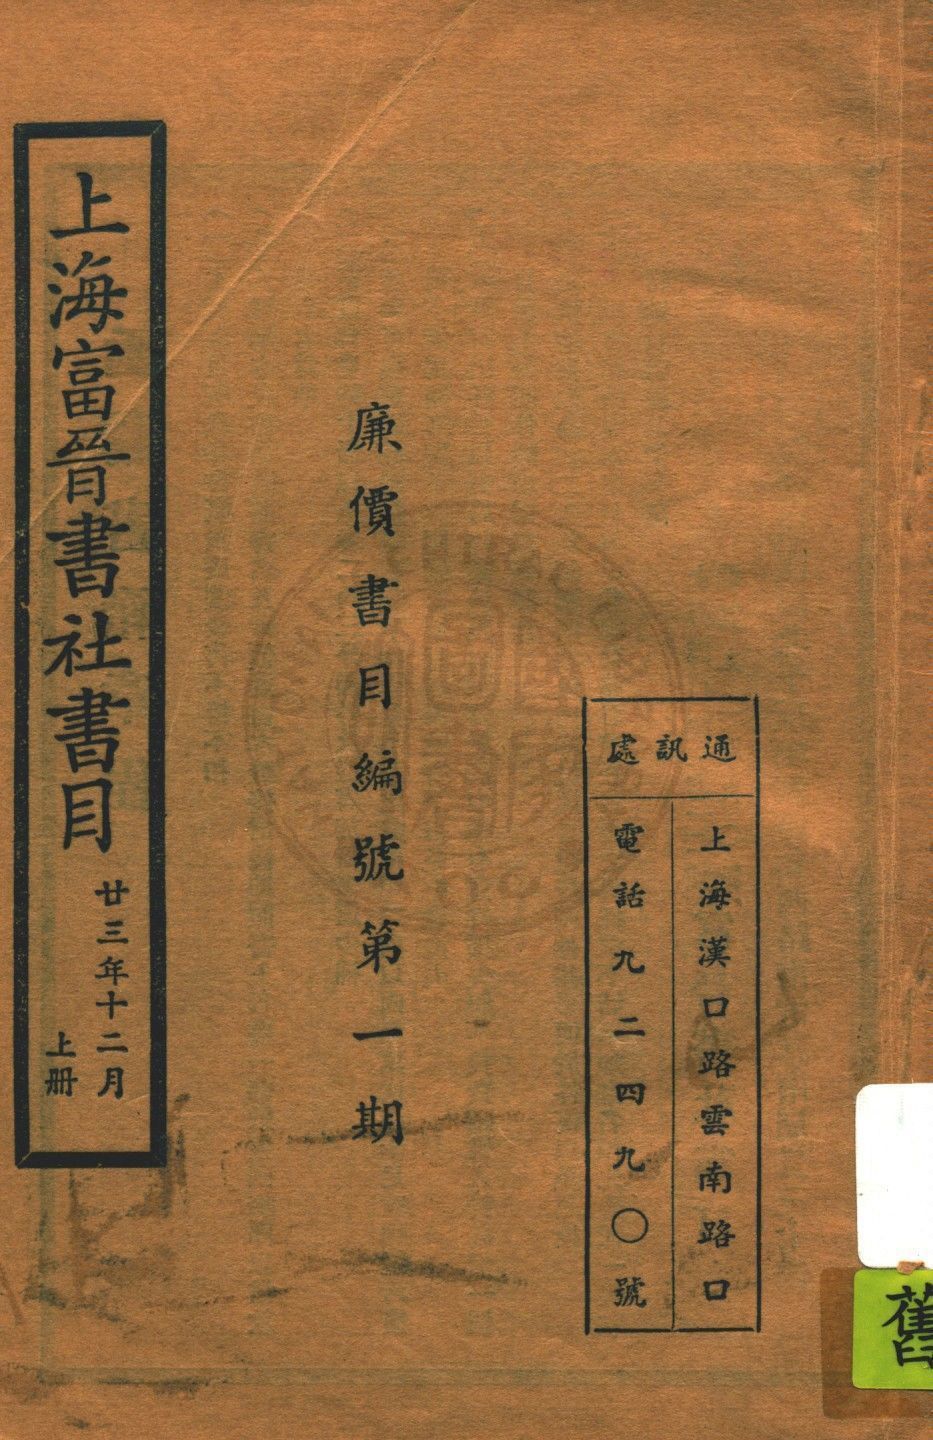 通訊處
上海漢口路雲南路口
電話九二四九〇號
廉價書目編號第一期
上海富晉書社書目
廿三年十二月
上册
舊